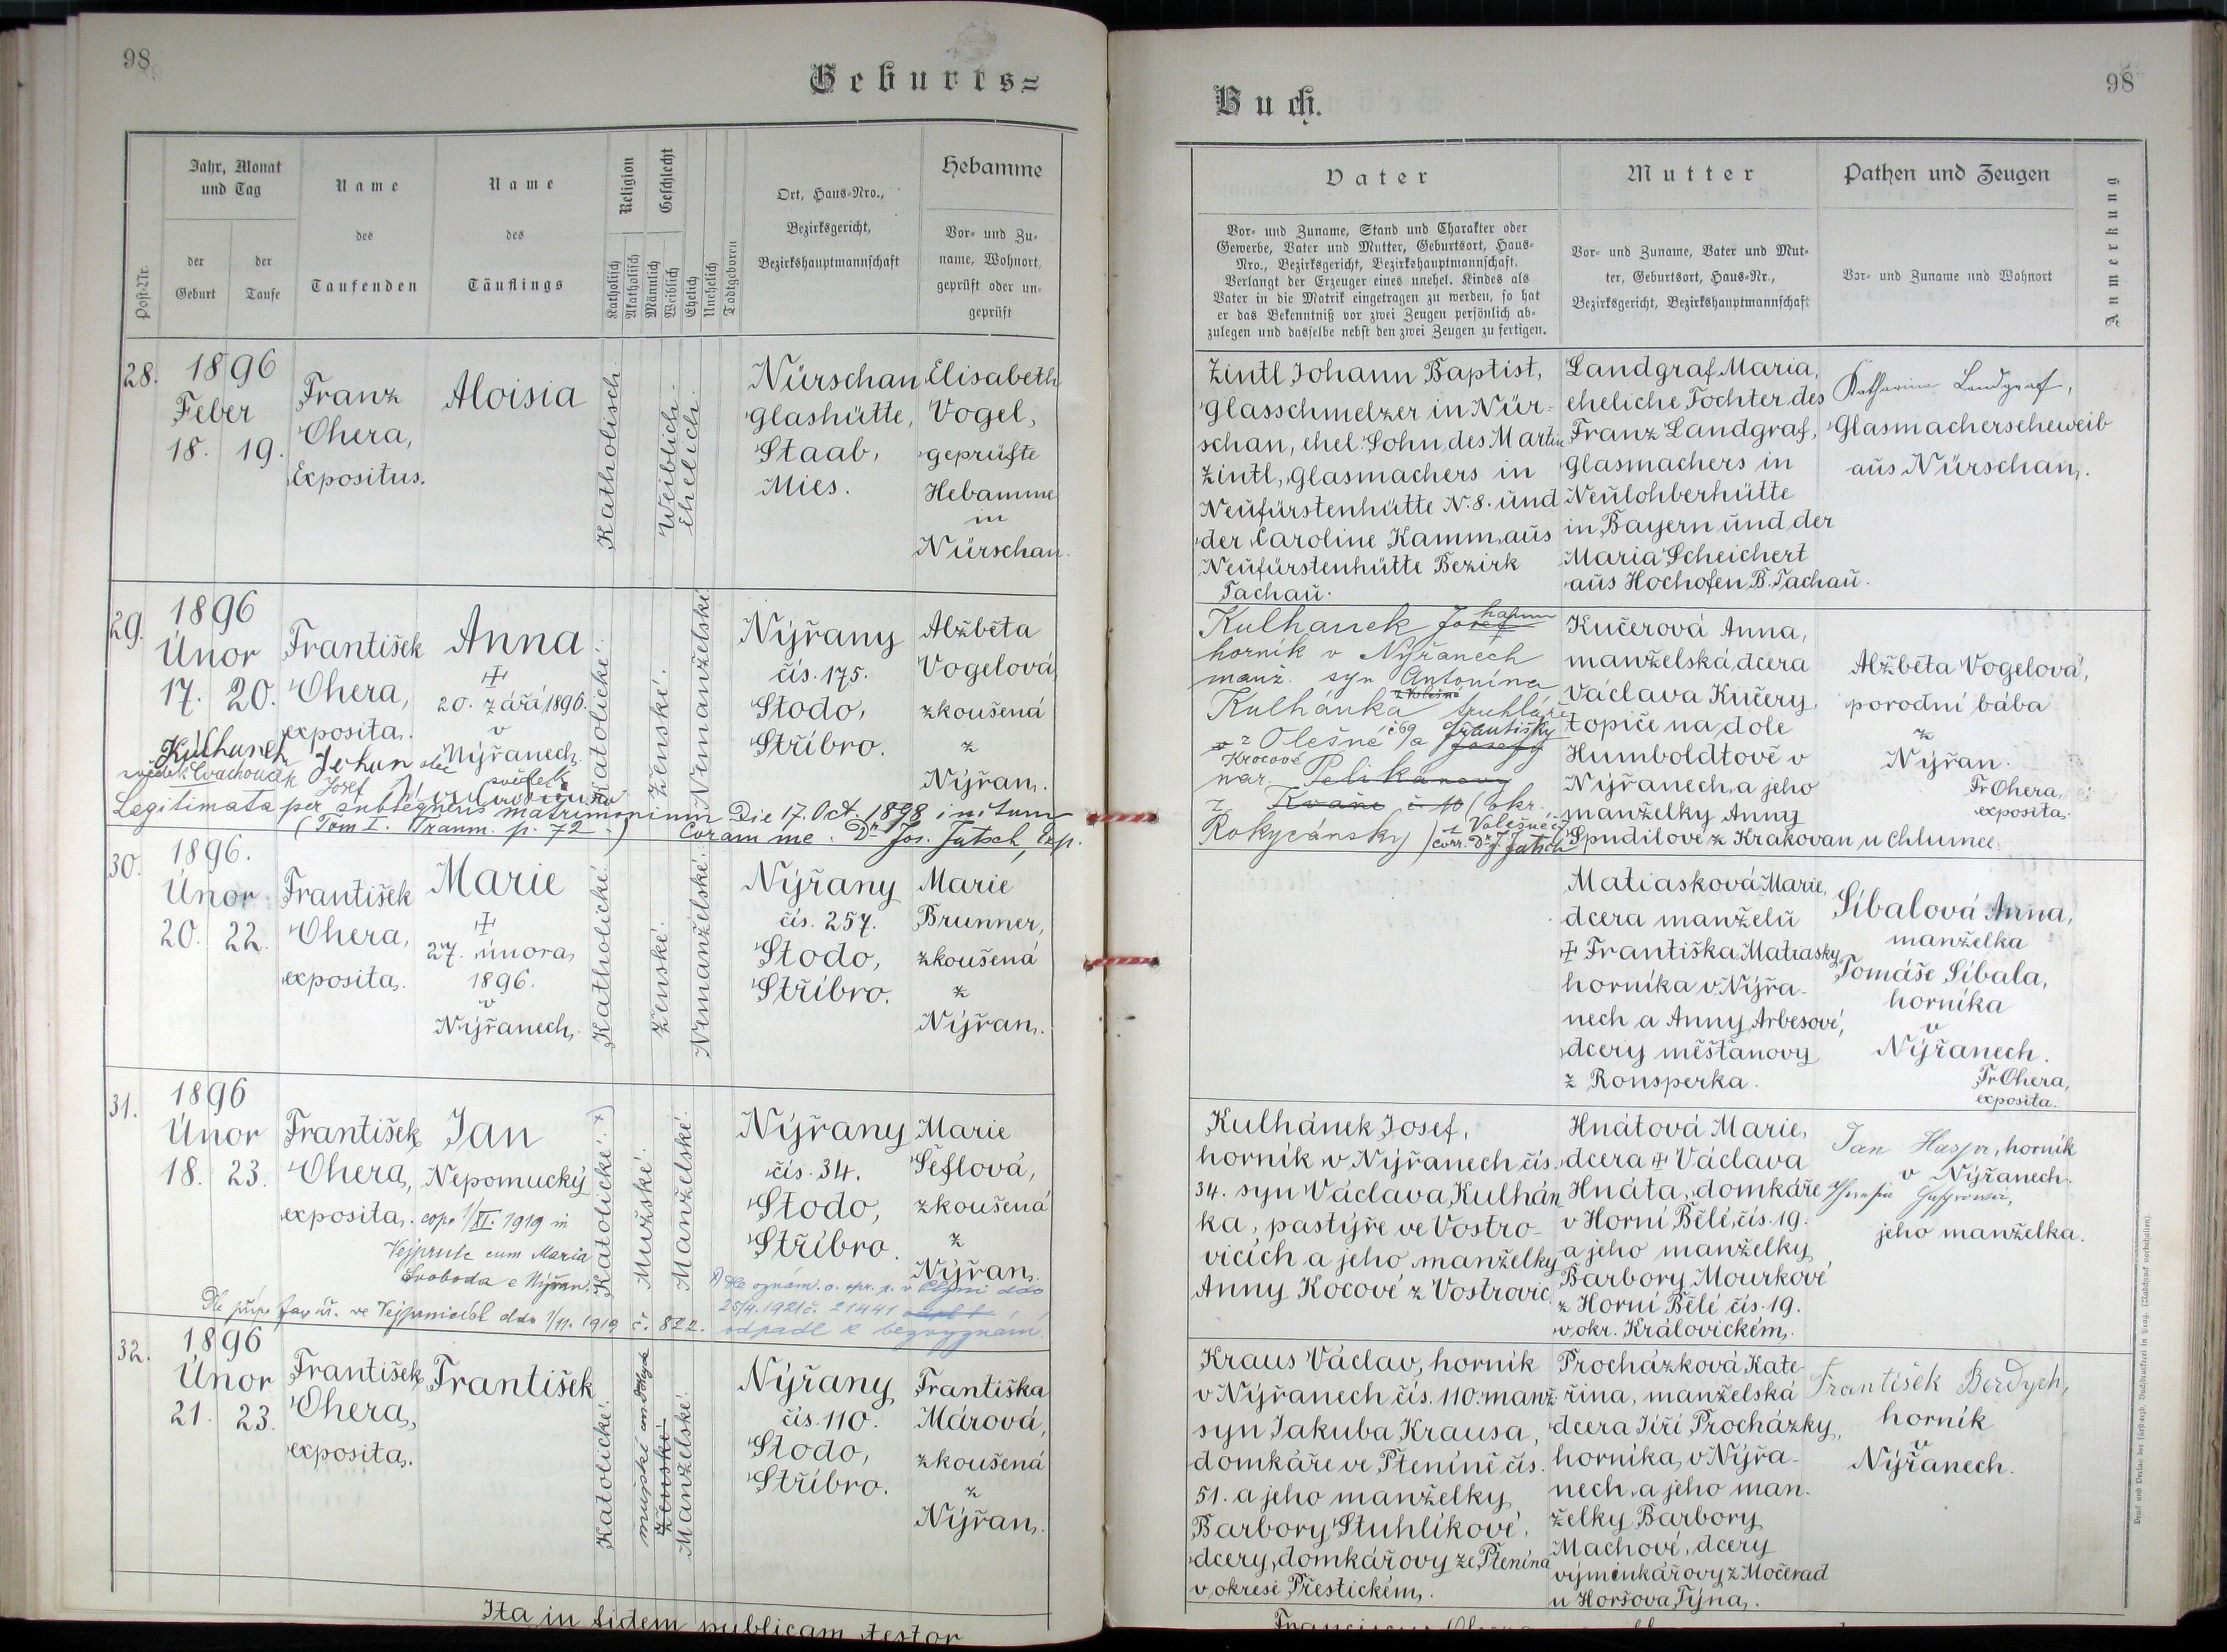 98
Geburts=
Post-Nr.
Jahr, Monat
und Tag
der
Geburt
der
Taufe
Name
des
Taufenden
Name
des
Täuflings
Religion
Katholisch
Akatholisch
Geschlecht
Männlich
Weiblich
Ehelich
Unehelich
Todtgeboren
Ort, Haus-Nro.,
Bezirksgericht,
Bezirkshauptmannschaft
Hebamme
Vor- und Zu-
name, Wohnort,
geprüft oder un-
geprüft
28.
1896
Feber
18. 19.
Franz
Ohera,
Expositus.
Aloisia
Katholisch.
Weiblich.
Ehelich.
Nürschan
Glashütte,
Staab,
Mies.
Elisabeth
Vogel,
geprüfte
Hebamme
in
Nürschan.
29.
1896
Únor
17. 20.
František
Ohera,
exposita.
Anna
20. září 1896.
v
Nýřanech.
Katolické.
Ženské.
Nemanželské
Nýřany
čís. 175.
Stodo,
Stříbro.
Alžběta
Vogelová,
zkoušená
z
Nýřan.
Kulhanek Johan otec
Josef
svědek
Legitimata per subsequens matrimonium Die 17. Oct. 1898 initum
(Tom I. Traum. p. 72.) Coram me: Dr. Jos. Jatsch, Exp.
30.
1896.
Únor
20. 22.
František
Ohera,
exposita.
Marie
27. února
1896.
v
Nýřanech.
Katholické.
Ženské.
Nemanželské.
Nýřany
čís. 257.
Stodo,
Stříbro.
Marie
Brunner,
zkoušená
z
Nýřan.
31.
1896
Únor
18. 23.
František
Ohera,
exposita.
Jan
Nepomucký
cop. 1/XI. 1919 in
Vejprnic cum Maria
Svoboda e Nýřan.
Katolické. x)
Mužské.
Manželské.
Nýřany
čís. 34.
Stodo,
Stříbro.
Marie
Šeflová,
zkoušená
z
Nýřan.
x) Dle oznám. o. spr. p. v Plzni ddo
25/4. 1921 č. 21441
odpadl k bezvyznání.
Dle příp. far. úř. ve Vejprnicích ddo 1/11. 1919 č. 822.
32.
1896
Únor
21. 23.
František
Ohera,
exposita.
František
Katolické.
mužské
Ženské
Manželské.
Nýřany
čís. 110.
Stodo,
Stříbro.
Františka
Márová,
zkoušená
z
Nýřan.
Ita in fidem publicam testor
98
Buch.
Vater
Vor- und Zuname, Stand und Charakter oder
Gewerbe, Vater und Mutter, Geburtsort, Haus-
Nro., Bezirksgericht, Bezirkshauptmannschaft.
Verlangt der Erzeuger eines unehel. Kindes als
Vater in die Matrik eingetragen zu werden, so hat
er das Bekenntniß vor zwei Zeugen persönlich ab-
zulegen und dasselbe nebst den zwei Zeugen zu fertigen.
Mutter
Vor- und Zuname, Vater und Mut-
ter, Geburtsort, Haus-Nr.,
Bezirksgericht, Bezirkshauptmannschaft
Pathen und Zeugen
Vor- und Zuname und Wohnort
Anmerkung
Zintl Johann Baptist,
Glasschmelzer in Nür-
schan, ehel. Sohn des Martin
Zintl, Glasmachers in
Neufürstenhütte N. 8. und
der Caroline Kamm, aus
Neufürstenhütte Bezirk
Tachau.
Landgraf Maria,
eheliche Tochter des
Franz Landgraf,
Glasmachers in
Neulohberhütte
in Bayern und der
Maria Scheichert
aus Hochofen B. Tachau.
Katharina Landgraf,
Glasmacherseheweib
aus Nürschan.
Kulhanek Josef hann
horník v Nýřanech
manž. syn Antonína
Kulhánka truhláře
z Olešné č 69 a Josefy Františky
Krocové
nar. Pelikánovy
z Kvaně č. 10 (okr.
Rokycánsky) z Volešné
corr. Dr. J. Jatsch
Kučerová Anna,
manželská dcera
Václava Kučery,
topiče na dole
Humboldtově v
Nýřanech a jeho
manželky Anny
Spudilové z Krakovan u Chlumce.
Alžběta Vogelová,
porodní bába
z
Nýřan.
Fr Ohera,
exposita.
Matiasková Marie,
dcera manželů
Františka Matiasky
horníka v Nýřa-
nech a Anny Arbesové,
dcery měšťanovy
z Ronsperka.
Síbalová Anna,
manželka
Tomáše Síbala,
horníka
v
Nýřanech.
Fr Ohera,
exposita.
Kulhánek Josef,
horník v Nýřanech čís.
34. syn Václava Kulhán
ka, pastýře ve Vostro-
vicích a jeho manželky
Anny Kocové z Vostrovic
Hnátová Marie,
dcera Václava
Hnáta, domkáře
v Horní Bělé, čís. 19.
a jeho manželky
Barbory Mourkové
z Horní Bělé čís. 19.
v okr. Královickém.
Jan Haspr, horník
v Nýřanech.
jeho manželka.
Kraus Václav, horník
v Nýřanech čís. 110. manž
syn Jakuba Krausa,
domkáře ve Ptenině čís.
51. a jeho manželky
Barbory Stuhlíkové,
dcery domkářovy ze Ptenína
v okresi Přestickém.
Procházková Kate-
řina, manželská
dcera Jiří Procházky,
horníka v Nýřa-
nech a jeho man-
želky Barbory
Machové, dcery
výminkářovy z Močerad
u Horšova Týna.
František Berdych,
horník
v
Nýřanech.
Franciscus Ohera